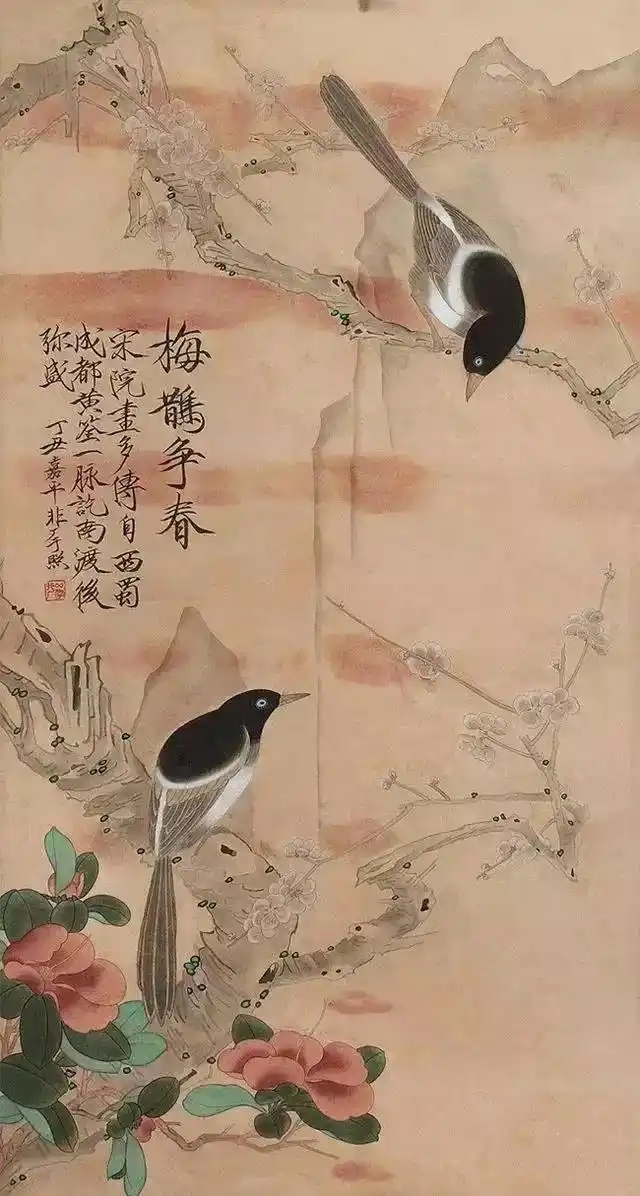 梅鵲争春
宋院畫多傳自西蜀
成都黃筌一脉訖南渡後
弥盛
丁丑嘉平非厂照